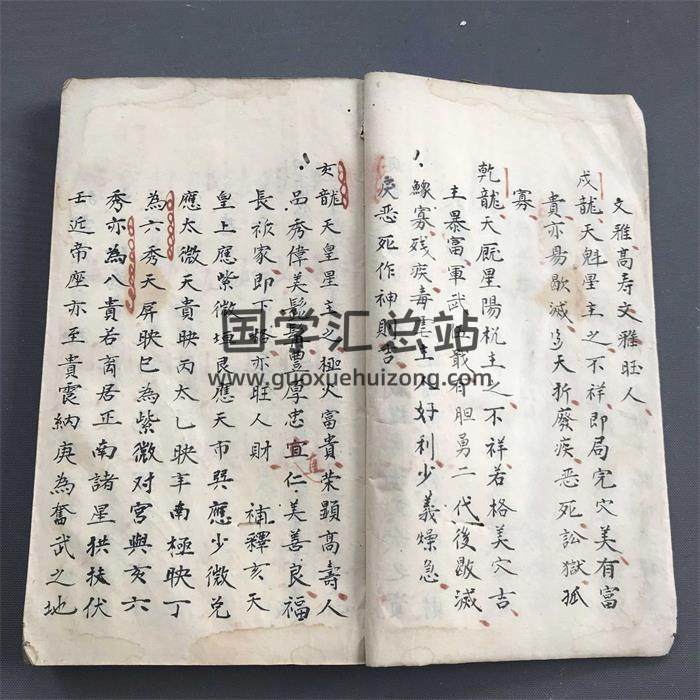 文雅高寿文雅旺人
戌龍天魁星主之不祥即局完穴美有富
貴亦易歇滅多夭折廢疾恶死訟獄孤
寡
乾龍天厩星陽枕主之不祥若格美穴吉
主暴富軍武有胆勇二代後歇滅
鰥寡残疾毒好利少義燥急
戾恶死作神
亥龍天皇星主之極火富貴荣顕高壽人
品秀偉美髭髯豊厚忠宜仁美善良福
直
長被家即下格亦旺人財 補釋亥天
皇上應紫微垣艮應天市巽應少微兑
應太微天貴映丙太乙映辛南極映丁
為六秀天屏映巳為紫微对宮與亥六
秀亦為八貴若离居正南諸星拱扶伏
壬近帝座亦至貴震納庚為奮武之地
国学汇总站
www.guoxuehuizong.com